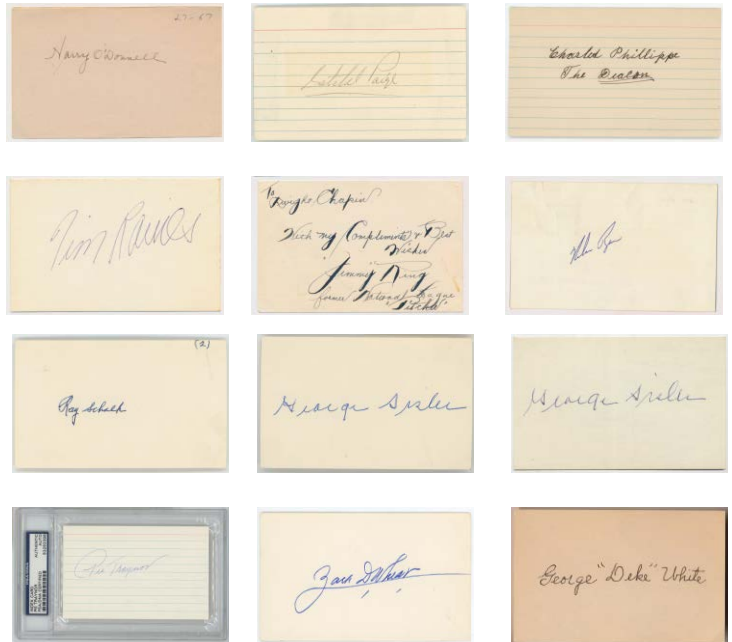 27-67
Harry O'Donnell
Satchel Paige
Charles Phillippe
The Deacon
Tim Raines
To Dwight Chapin
With my Compliments & Best
Wishes
Jimmy Ring
former National League
Pitcher
Nolan Ryan
(2)
Ray Schalk
George Sisler
George Sisler
Pie Traynor
Zack D Wheat
George "Deke" White